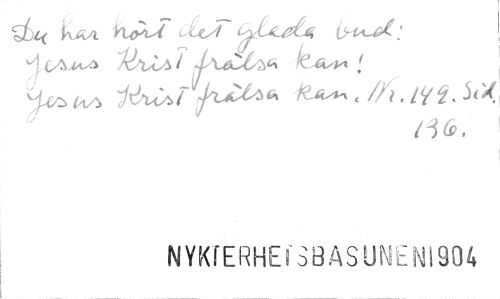 Du har hört det glada bud:
Jesus Krist frälsa kan!
Jesus Krist frälsa kan. Nr. 149. Sid.
136.
NYKTERHETSBASUNEN1904